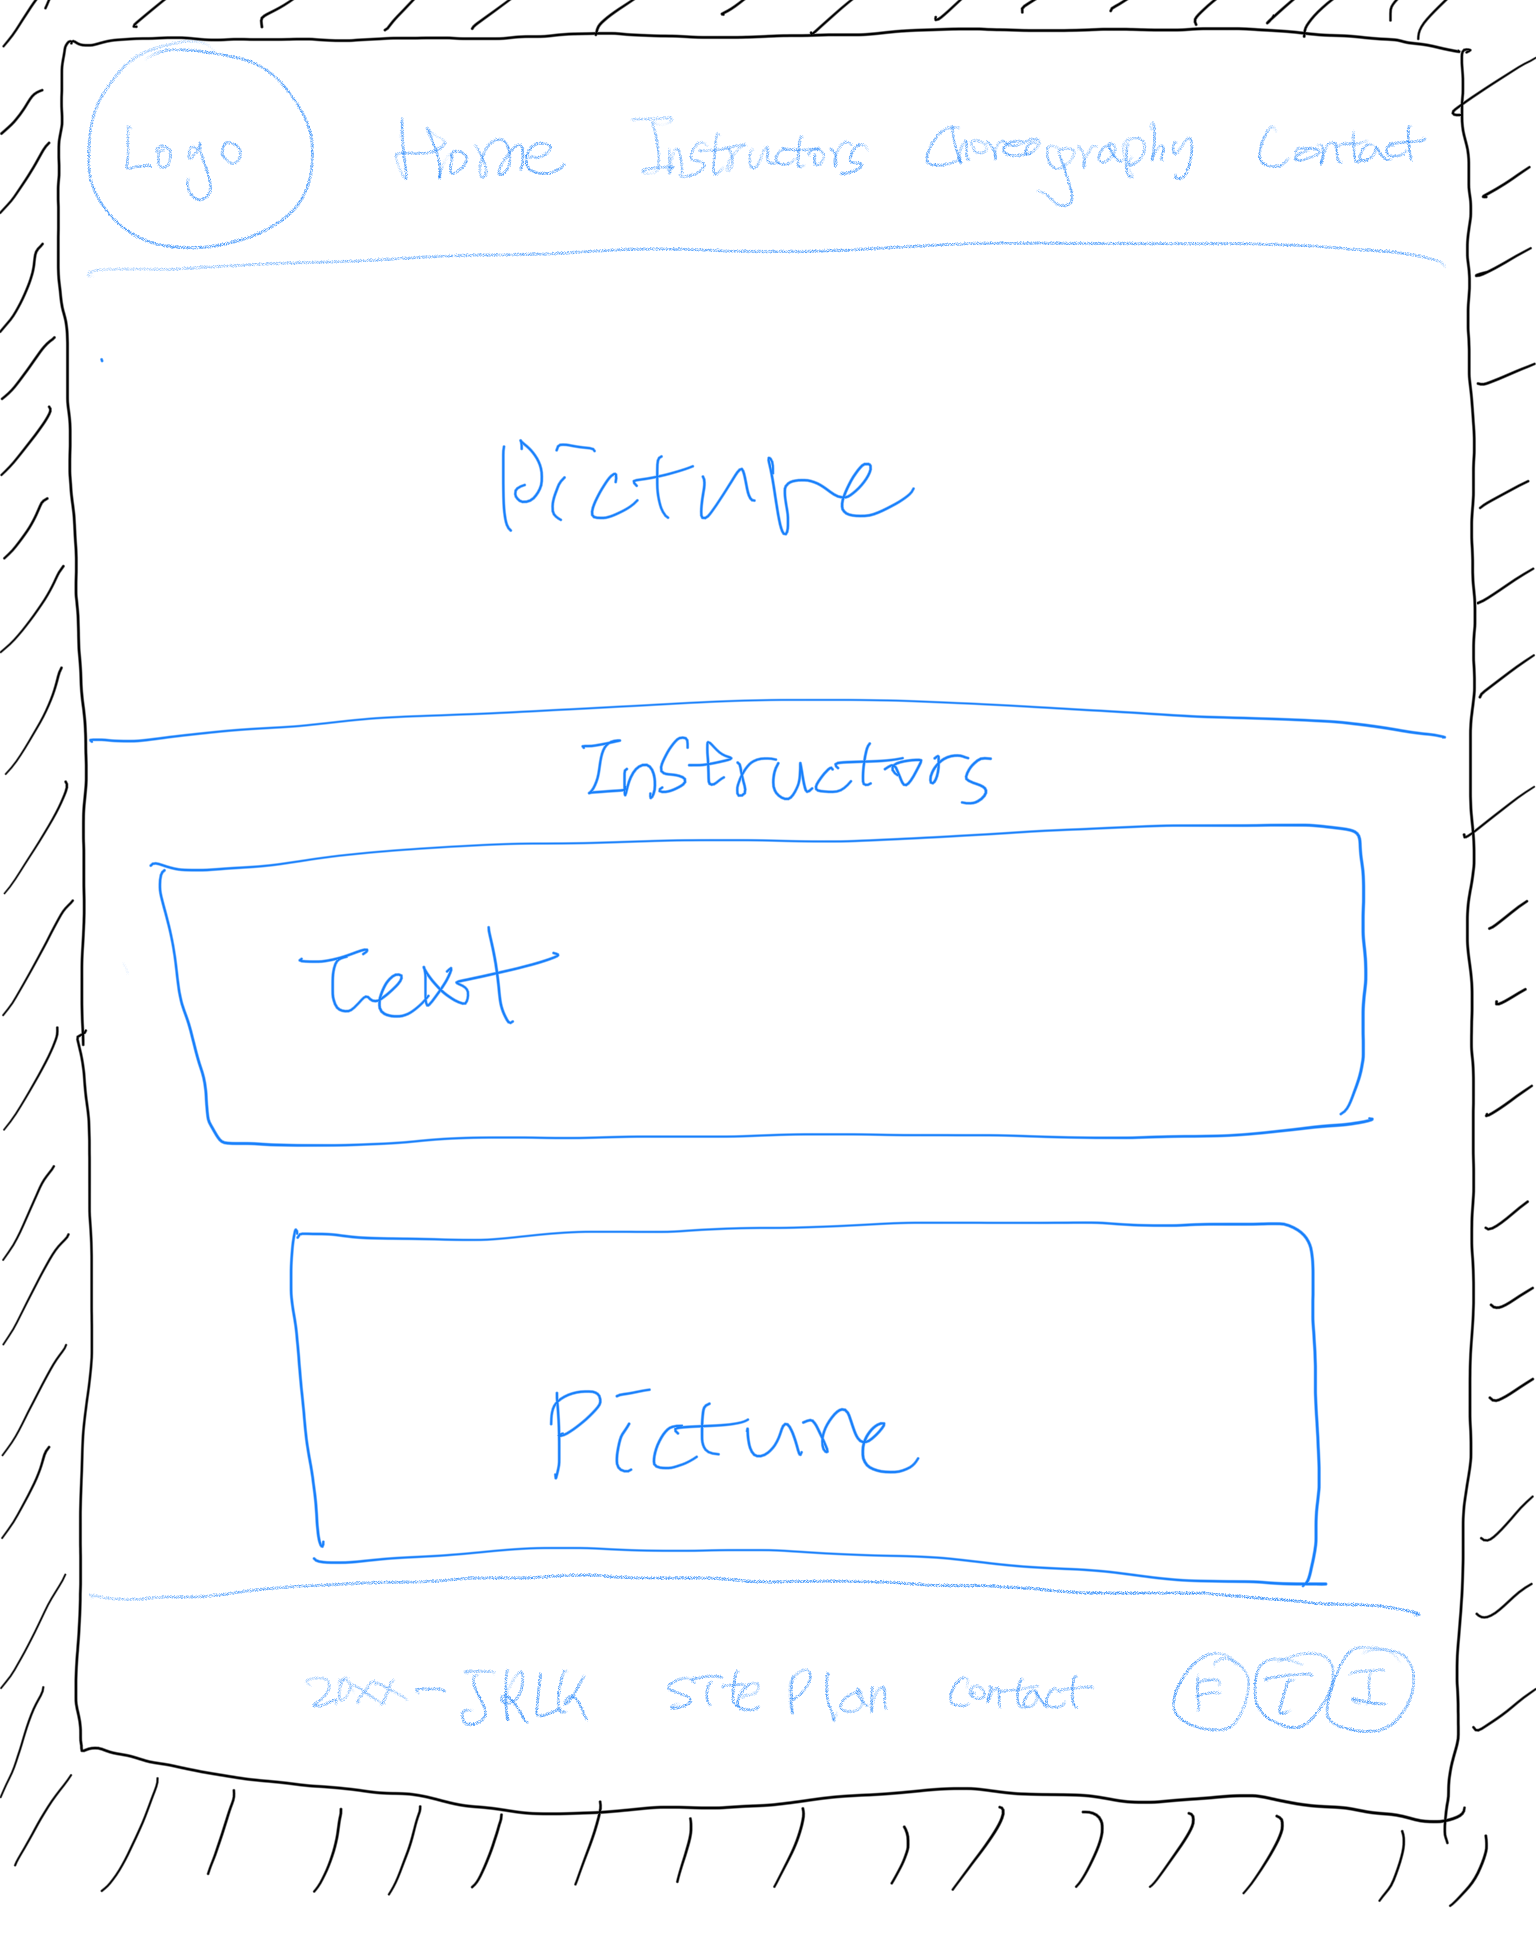 Logo Home Instructors Choreography Contact
Picture
Instructors
Text
Picture
20xx - JRLK Site Plan Contact F T I